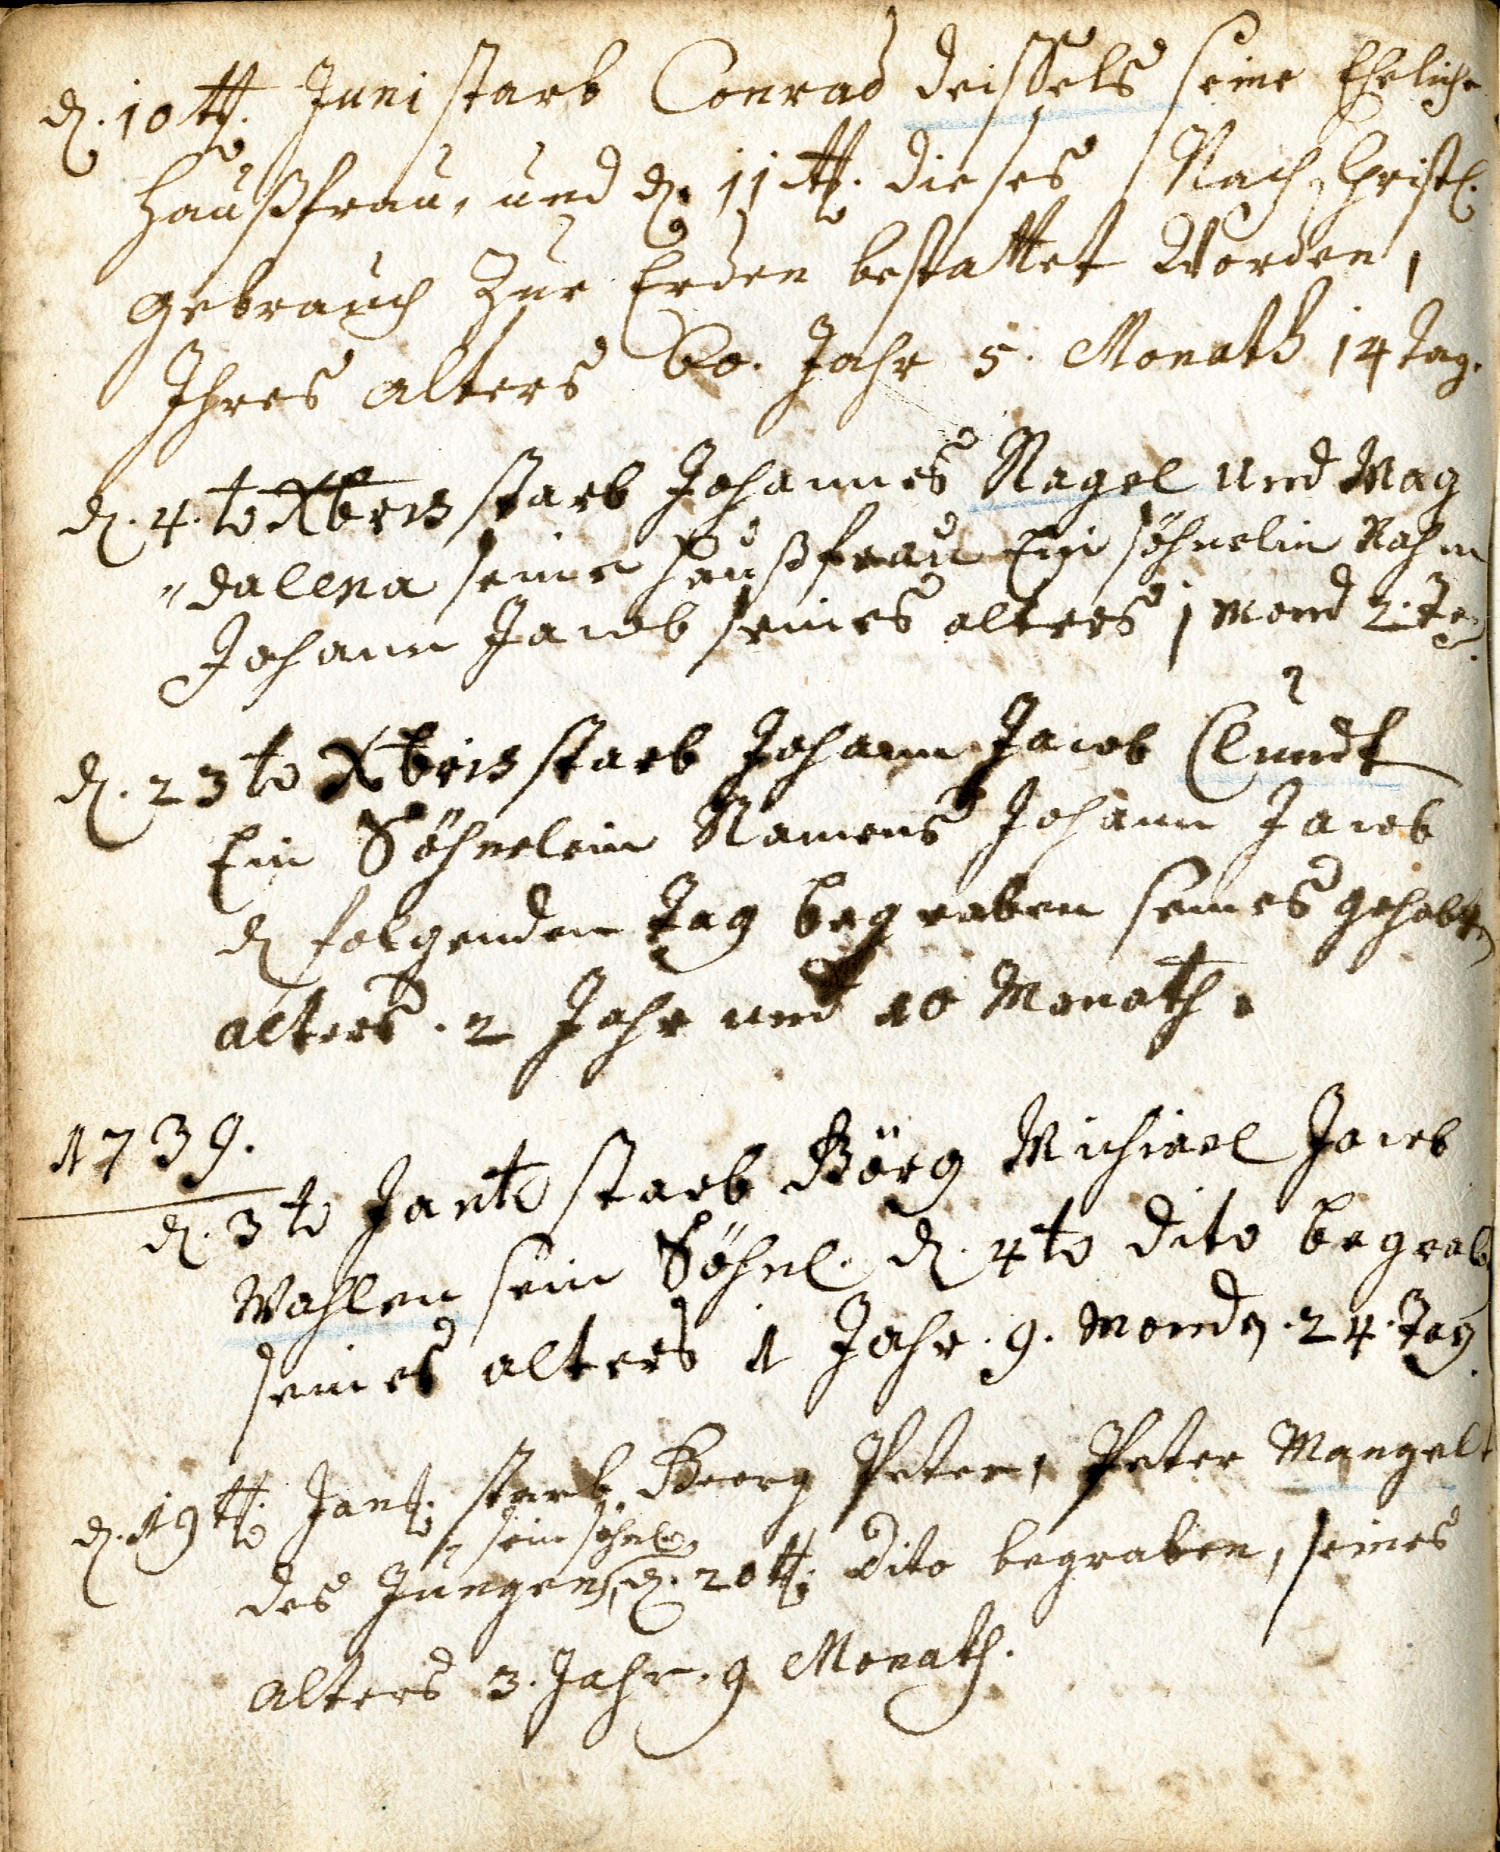 d. 10tt. Juni starb Conrad deissels seine Eheliche
Haußfrau, und d. 11tt. dieses Nach Christl.
gebrauch Zur Erden bestattet Worden,
Ihres alters 60. Jahr 5. Monath 14 Tag.
d. 4.to Xbris starb Johannes Nagel Und Mag
"dalena seine Haußfrau Ein söhnelin Nahm
Johann Jacob seines alters 1 Mond 2. Tag.
d. 23to Xbris starb Johann Jacob Clundt
Ein Söhnelein Namens Johann Jacob
d folgenden Tag begraben seines gehabten
alters. 2 Jahr und 10 Monath.
1739.
d. 3to Janr. starb Görg Michael Jacob
Wahlen sein Söhnl. d. 4to dito begrab
seines alters 1 Jahr. 9. Mond. 24. Tag.
d. 19tt. Jan. starb Georg Peter, Peter Mangelt
sein söhnl.
des Jungen, d. 20tt. dito begraben, seines
alters 3. Jahr. 9 Monath.